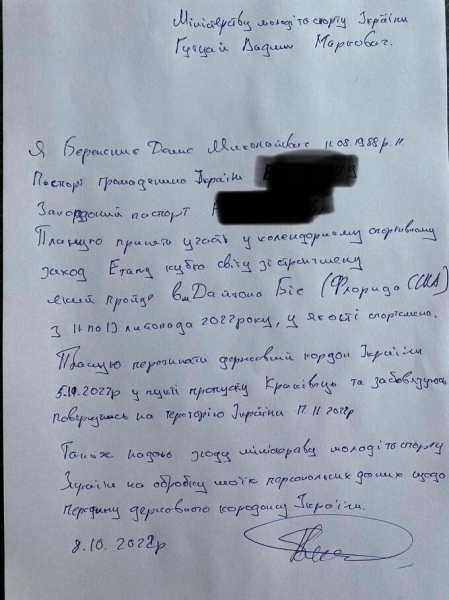 Міністерству молоді та спорту України
Гутцайт Вадим Маркович.
Я Бережник Данис Миколайович 11.08.1988р.н.
Паспорт громадянина України
Закордоний паспорт
Планую приняти участь у календарному спортивному
заході Етапу кубка світу зі стретчлифту
який пройде в м. Дайтона Біс (Флорида США)
з 11 по 13 листопада 2022 року, у якості спортсмена.
Планую перетинати державний кордон України
2022р у пункті пропуску Краківець та забовязуюсь
повернутись на територію України 17.11 2022р
Також надаю згоду міністерству молоді та спорту
України на обробку моїх персональних даних щодо
перетину державного кордону України.
8.10. 2022р